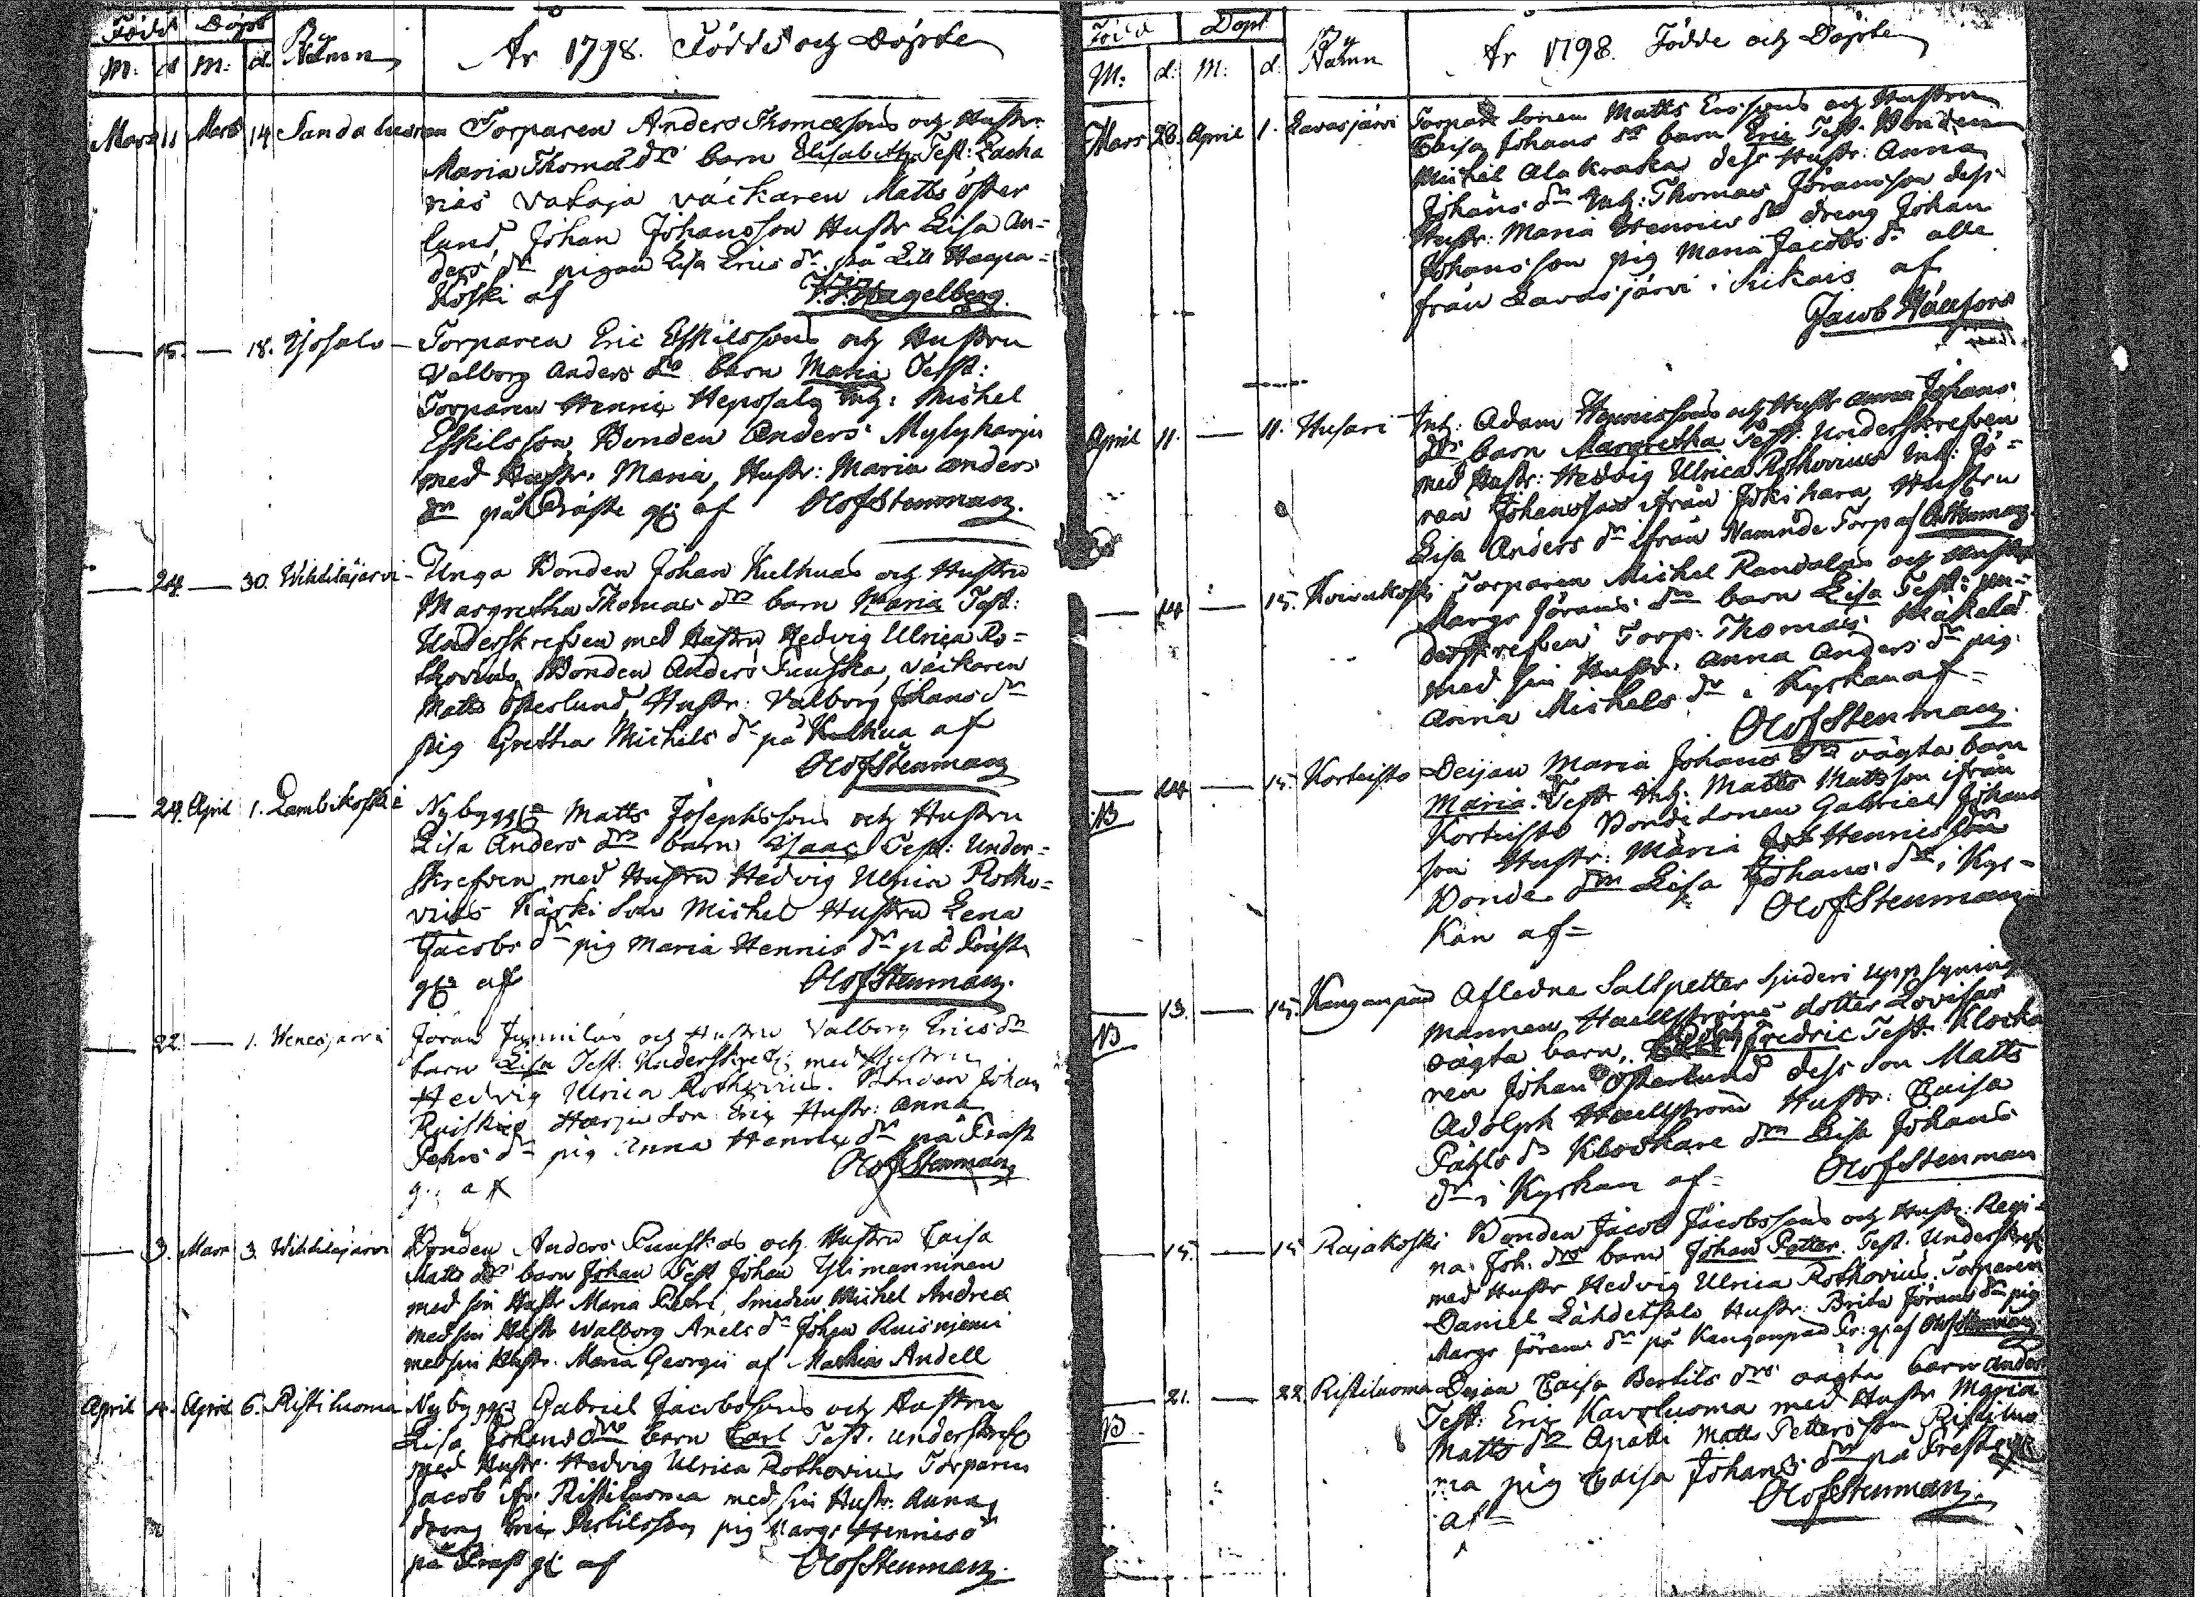 Född Döpt By Namn År 1798. Födde och Döpte
M: d M: d.
Mars 11 Mars 14 Sandaluoma Torparen Anders Thomæsons och Hustr:
Maria Thomæ dr barn Elisabeth Test: Zacha
rias Vataja väckaren Matts öster
lund, Johan Johansson Hustr Lisa An=
ders dr pigan Lisa Erics dr på Lill Haapa=
koski af Hagelberg.
— 15. — 18. Torparen Eric Eskilssons och Hustru
Valborg Anders dr barn Maria Test:
Torparen Hennric Heposalo Inh: Michel
Eskilsson, Bonden Anders Mylyharju
med Hustr: Maria, Hustr: Maria Anders
dr på Präste g: af Olof Stenman.
— 24 — 30. Wihtiläjärvi Unga Bonden Johan Kulhuas och Hustru
Margretha Thomas dr barn Maria Test:
Underskrefven med Hustru Hedvig Ulrica Ro=
thovius, Bonden Anders Puuska, väckaren
Matts Österlund, Hustr: Valborg Johans dr
pig Gretha Michels dr på Kulhua af
Olof Stenman
— 24. April 1. Lambikoski Nybygg: Matts Josephssons och Hustru
Lisa Anders dr barn Isaac Test: Under=
skrefven med Hustru Hedvig Ulrica Rotho=
vius Käski Son Michel Hustru Lena
Jacobs dr pig Maria Hennis dr på Präste
g: af Olof Stenman.
— 22. — 1. Venesjärvi Jöran Junnilas och Hustru Valborg Erics dr
barn Lisa Test: Underskref: med Hustru
Hedvig Ulrica Rothovius. Bonden Johan
Ruiskig Harju Son Eric Hustr: Anna
Pehrs dr pig Anna Hennric dr på Präst
g: af Olof Stenman
— 3. Mars 3. Wihtiläjärvi Bonden Anders Puuskas och Hustru Caisa
Matts dr barn Johan Test Johan Ylimanninen
med sin Hustr Maria Pietri, Smeden Michel Andreæ
med sin Hustr Walborg Axels dr Johan Ruisniemi
med sin Hustr. Maria Georgii af Mathias Andell
April 4. April 6. Ristiluoma Nybygg: Gabriel Jacobssons och Hustru
Lisa Johans dr barn Carl Test. underskref
med Hustr. Hedvig Ulrica Rothovius Torparen
Jacob Ristiluoma med sin Hustr: Anna,
dräng Eric Bertilsson, pig Margr Hennis dr
på Präst g: af Olof Stenman.
Född Döpt By Namn År 1798. Födde och Döpte
M: d: M: d:
Mars 28. April 1. Lavasjärvi Torpare Sonen Matts Erssons och Hustru
Caisa Johans dr barn Eric Test: Bonden
Michel Alakraka dess Hustr: Anna
Johans dr Inh: Thomas Jöransson dess
Hustr: Maria Hennrics dr dreng Johan
Johansson pig Maria Jacobs dr alla
från Lavasjärvi i Sikais af
Jacob
April 11. — 11. Husari Inh: Adam Hennissons och Hustr Anna Johans
dr barn Margretha Test: Underskrefven
med Hustr: Hedvig Ulrica Rothovius Inh: Jö=
ran Johansson ifrån Jokihara, Hustru
Lisa Anders dr ifrån Namnde Torp af O Stenman.
— 14 — 15. Koivukoski Torparen Michel Randalas och Hustru
Margr Jörans dr barn Lisa Test: un=
derskrefven Torp: Thomas Mäkelä
med sin Hustr. Anna Anders dr pig
Anna Michels dr i Kyrkan af=
Olof Stenman.
— 14 — 15. Korteisto Deijan Maria Johans dr oägta barn
NB Maria. Test Inh: Matts Mattsson ifrån
Korteisto Bondesonen Gabriel Johans
son Hustr: Maria Hennisson
Bonde drn Lisa Johans dr i Kyr=
kan af= Olof Stenman
— 13. — 15. Kanganpää Afledne Saltpetter Sjuderi uppsynings
NB mannen Haellströms dotter Lovisas
oägta barn, Adolph Fredric Test. Klocka
ren Johan Österlund dess Son Matts
Adolph Haellström Hustr: Caisa
Påhls dr Klockare drn Lisa Johans
dr i Kyrkan af= Olof Stenman
— 15. — 15 Rajakoski Bonden Jacob Jacobssons och Hustr: Regi=
na Joh: drs barn Johan Petter. Test. Underskref
med Hustr Hedvig Ulrica Rothovius. Torparen
Daniel Lähdetsalo Hustr: Brita Jörans dr pig
Margr Jörans dr på Kanganpää Pr: g: af Olof Stenman
— 21. — 22. Ristiluoma Dejan Caisa Bertils drs oägta barn Anders
NB Test: Eric Karoluoma med Hustr Maria
Matts dr Apatti Matts Pettersson Ristiluo
ma pig Caisa Johans dr på Prestg:
af= Olof Stenman.